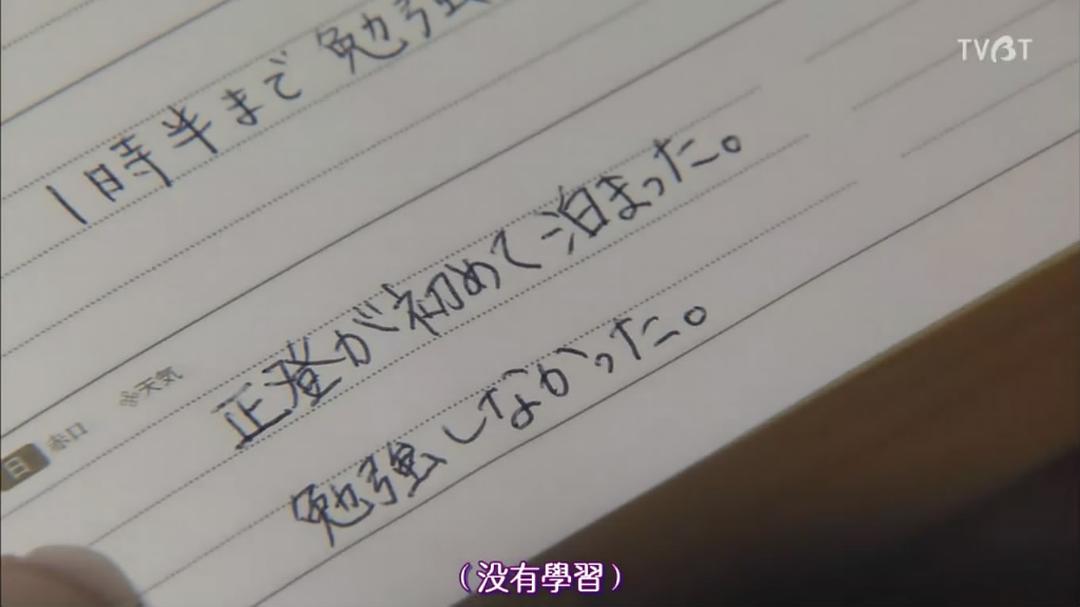 TVBT
1時半まで 勉強
正澄が初めて泊まった。
※天気
日 赤口
勉強しなかった。
（没有學習）